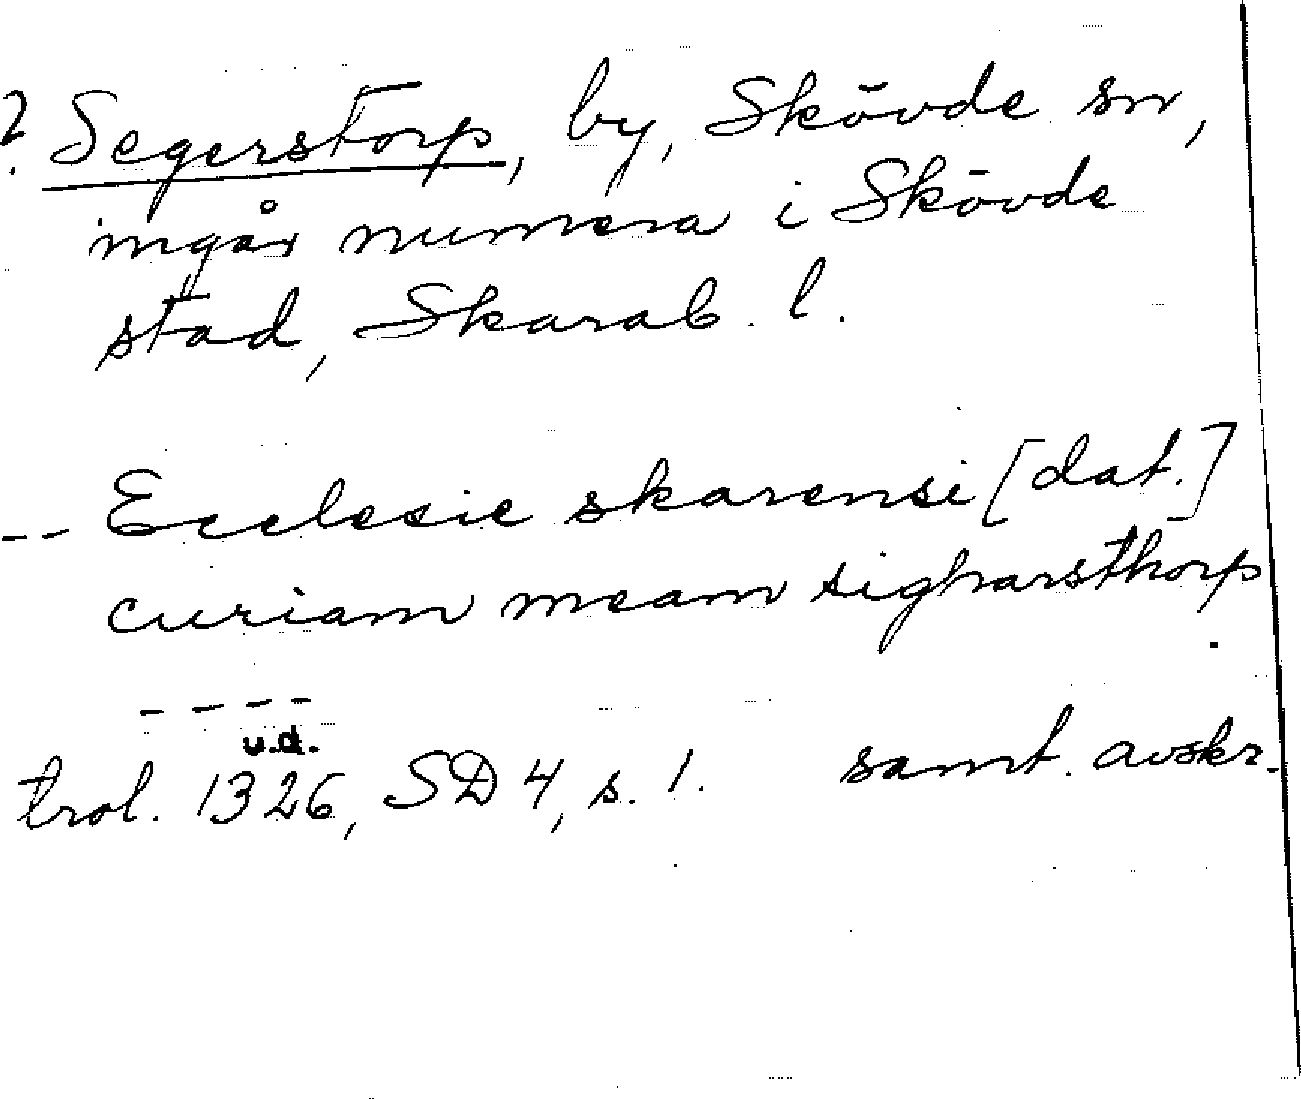 ? Segerstorp, by, Skövde sn,
ingår numera i Skövde
stad, Skarab. l.
-- Ecclesie skarensi [dat.]
curiam meam sigharsthorp
.
----
u.d.
trol. 1326, SD 4, s. 1. samt. avskr.